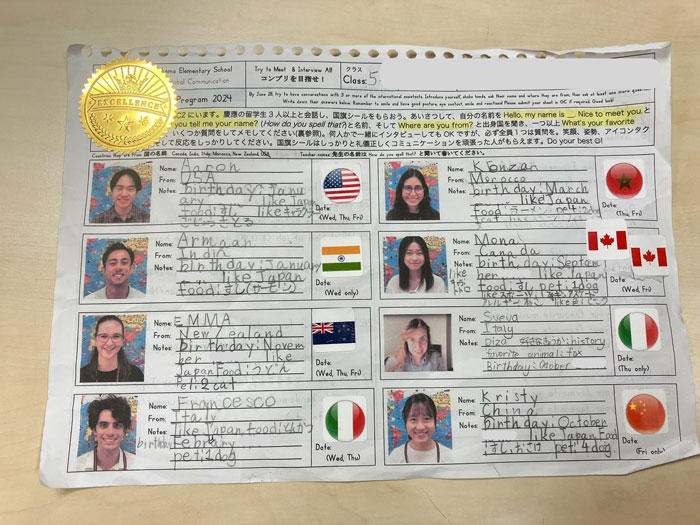 EXCELLENCE
Elementary School
Global Communication
Program 2024
Try to Meet & Interview All!
コンプリを目指せ!
クラス
Class: 5
By June 28, try to have conversations with 3 or more of the international assistants. Introduce yourself, shake hands, ask their name and where they are from, then ask at least one more
Write down their answers below. Remember to smile and have good posture, eye contact, smile and reactions! Please submit your sheet in GIC if required. Good luck!
C2にいます。慶應の留学生3人以上と会話し、国旗シールをもらおう。あいさつして、自分の名前を Hello, my name is __. Nice to meet you. と
you tell me your name? (How do you spell that?)と名前、そして Where are you from? と出身国を聞き、一つ以上 What's your favorite
いくつか質問をしてメモしてください(裏参照)。何人かで一緒にインタビューしてもOKですが、必ず全員1つは質問を。笑顔、姿勢、アイコンタク
そして反応をしっかりしてください。国旗シールはしっかりと礼儀正しくコミュニケーションを頑張った人がもらえます。Do your best ☺!
Countries they're from 国の名前: Canada, India, Italy, Morocco, New Zealand, USA
Teacher names 先生の名前は How do you spell that? と聞いて書いてください。
Name:
From: USA
Notes: birthday: Janu
ary like Japan
food: すし
Date:
(Wed, Thu, Fri)
Name:
From: Morocco
Notes: birthday: March
like Japan
food: ラーメン
Date:
(Thu, Fri)
Name: Armaan
From: India
Notes: birthday: January
like Japan
food: すし(サーモン)
Date:
(Wed only)
Name: Mona
From: Canada
Notes: birthday: Septem
ber like Japan
food: すし pet: 1dog
Date:
(Wed, Fri)
Name: EMMA
From: New Zealand
Notes: birthday: Novem
ber like
Japan Food: うどん
pet: 2 cat
Date:
(Wed, Thu, Fri)
Name: Sveva
From: Italy
Notes: history
favorite animal: fox
Birthday: October
Date:
(Thu only)
Name: Francesco
From: Italy
Notes: like Japan Food: とんかつ
birthday: Febrary
pet: 1dog
Date:
(Wed, Thu)
Name: Kristy
From: China
Notes: birthday: October
like Japan Food
: すし pet: 4dog
Date:
(Fri only)